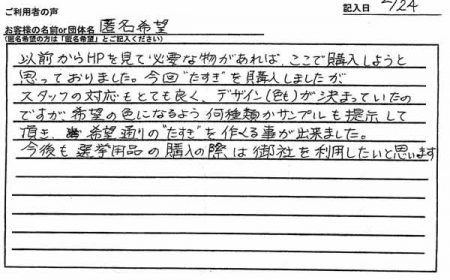 ご利用者の声
記入日 2/24
お客様の名前or団体名 匿名希望
(匿名希望の方は「匿名希望」とご記入ください)
以前からHPを見て必要な物があれば、ここで購入しようと
思っておりました。今回"たすき"を購入しましたが
スタッフの対応もとても良く、デザイン(色も)が決まっていたの
ですが希望の色になるよう何種類かサンプルも提示して
頂き、希望通りの"たすき"を作くる事が出来ました。
今後も選挙用品の購入の際は御社を利用したいと思います